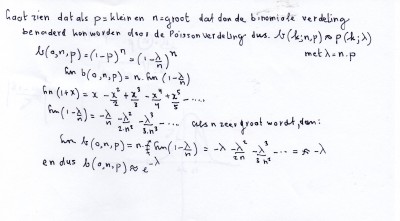 Laat zien dat als p=klein en n=groot dat dan de binomiale verdeling
benaderd kan worden door de Poissonverdeling dus. b(k;n,p) ≈ p(k;λ)
met λ = n.p
b(0,n,p) = (1-p)^n = (1-λ/n)^n
ln b(0,n,p) = n. ln(1-λ/n)
ln(1+x) = x - x²/2 + x³/3 - x⁴/4 + x⁵/5 - ....
ln(1-λ/n) = -λ/n - λ²/2.n² - λ³/3.n³ - .... als n zeer groot wordt, dan:
ln b(0,n,p) = n. ln(1-λ/n) = -λ - λ²/2n - λ³/3n² - ... ≈ -λ
en dus b(0,n,p) ≈ e^-λ